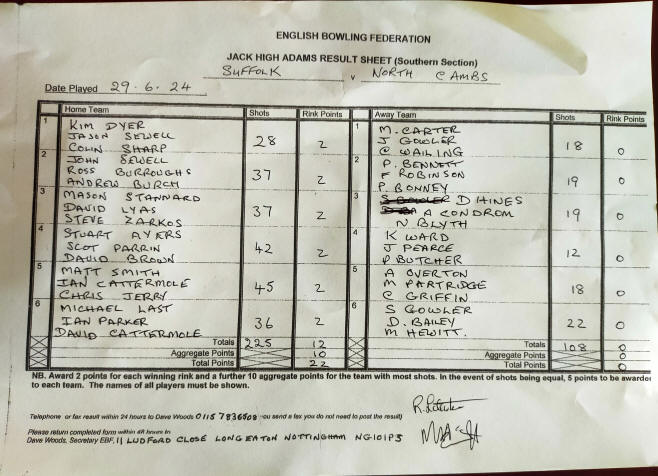 ENGLISH BOWLING FEDERATION
JACK HIGH ADAMS RESULT SHEET (Southern Section)
SUFFOLK v NORTH CAMBS
Date Played 29.6.24
Home Team Shots Rink Points Away Team Shots Rink Points
1 KIM DYER 1 M. CARTER
JASON SEWELL 28 2 J GOWLER 18 0
COLIN SHARP C WAILING
2 JOHN SEWELL 2 P. BENNETT
ROSS BURROUGHS 37 2 F ROBINSON 19 0
ANDREW BURCH P. BONNEY
3 MASON STANNARD 3 S GOWLER D HINES
DAVID LYAS 37 2 A CONDROM 19 0
STEVE ZARKOS N BLYTH
4 STUART AYERS 4 K WARD
SCOT PARRIN 42 2 J PEARCE 12 0
DAVID BROWN P BUTCHER
5 MATT SMITH 5 A OVERTON
IAN CATTERMOLE 45 2 M PARTRIDGE 18 0
CHRIS JERRY C GRIFFIN
6 MICHAEL LAST 6 S GOWLER
IAN PARKER 36 2 D. BAILEY 22 0
DAVID CATTERMOLE M HEWITT.
Totals 225 12 Totals 108 0
Aggregate Points 10 Aggregate Points 0
Total Points 22 Total Points 0
NB. Award 2 points for each winning rink and a further 10 aggregate points for the team with most shots. In the event of shots being equal, 5 points to be awarded
to each team. The names of all players must be shown.
Telephone or fax result within 24 hours to Dave Woods 0115 7836503 you send a fax you do not need to post the result)
Please return completed form within 48 hours to
Dave Woods, Secretary EBF, 11 LUDFORD CLOSE LONG EATON NOTTINGHAM NG10 1PS